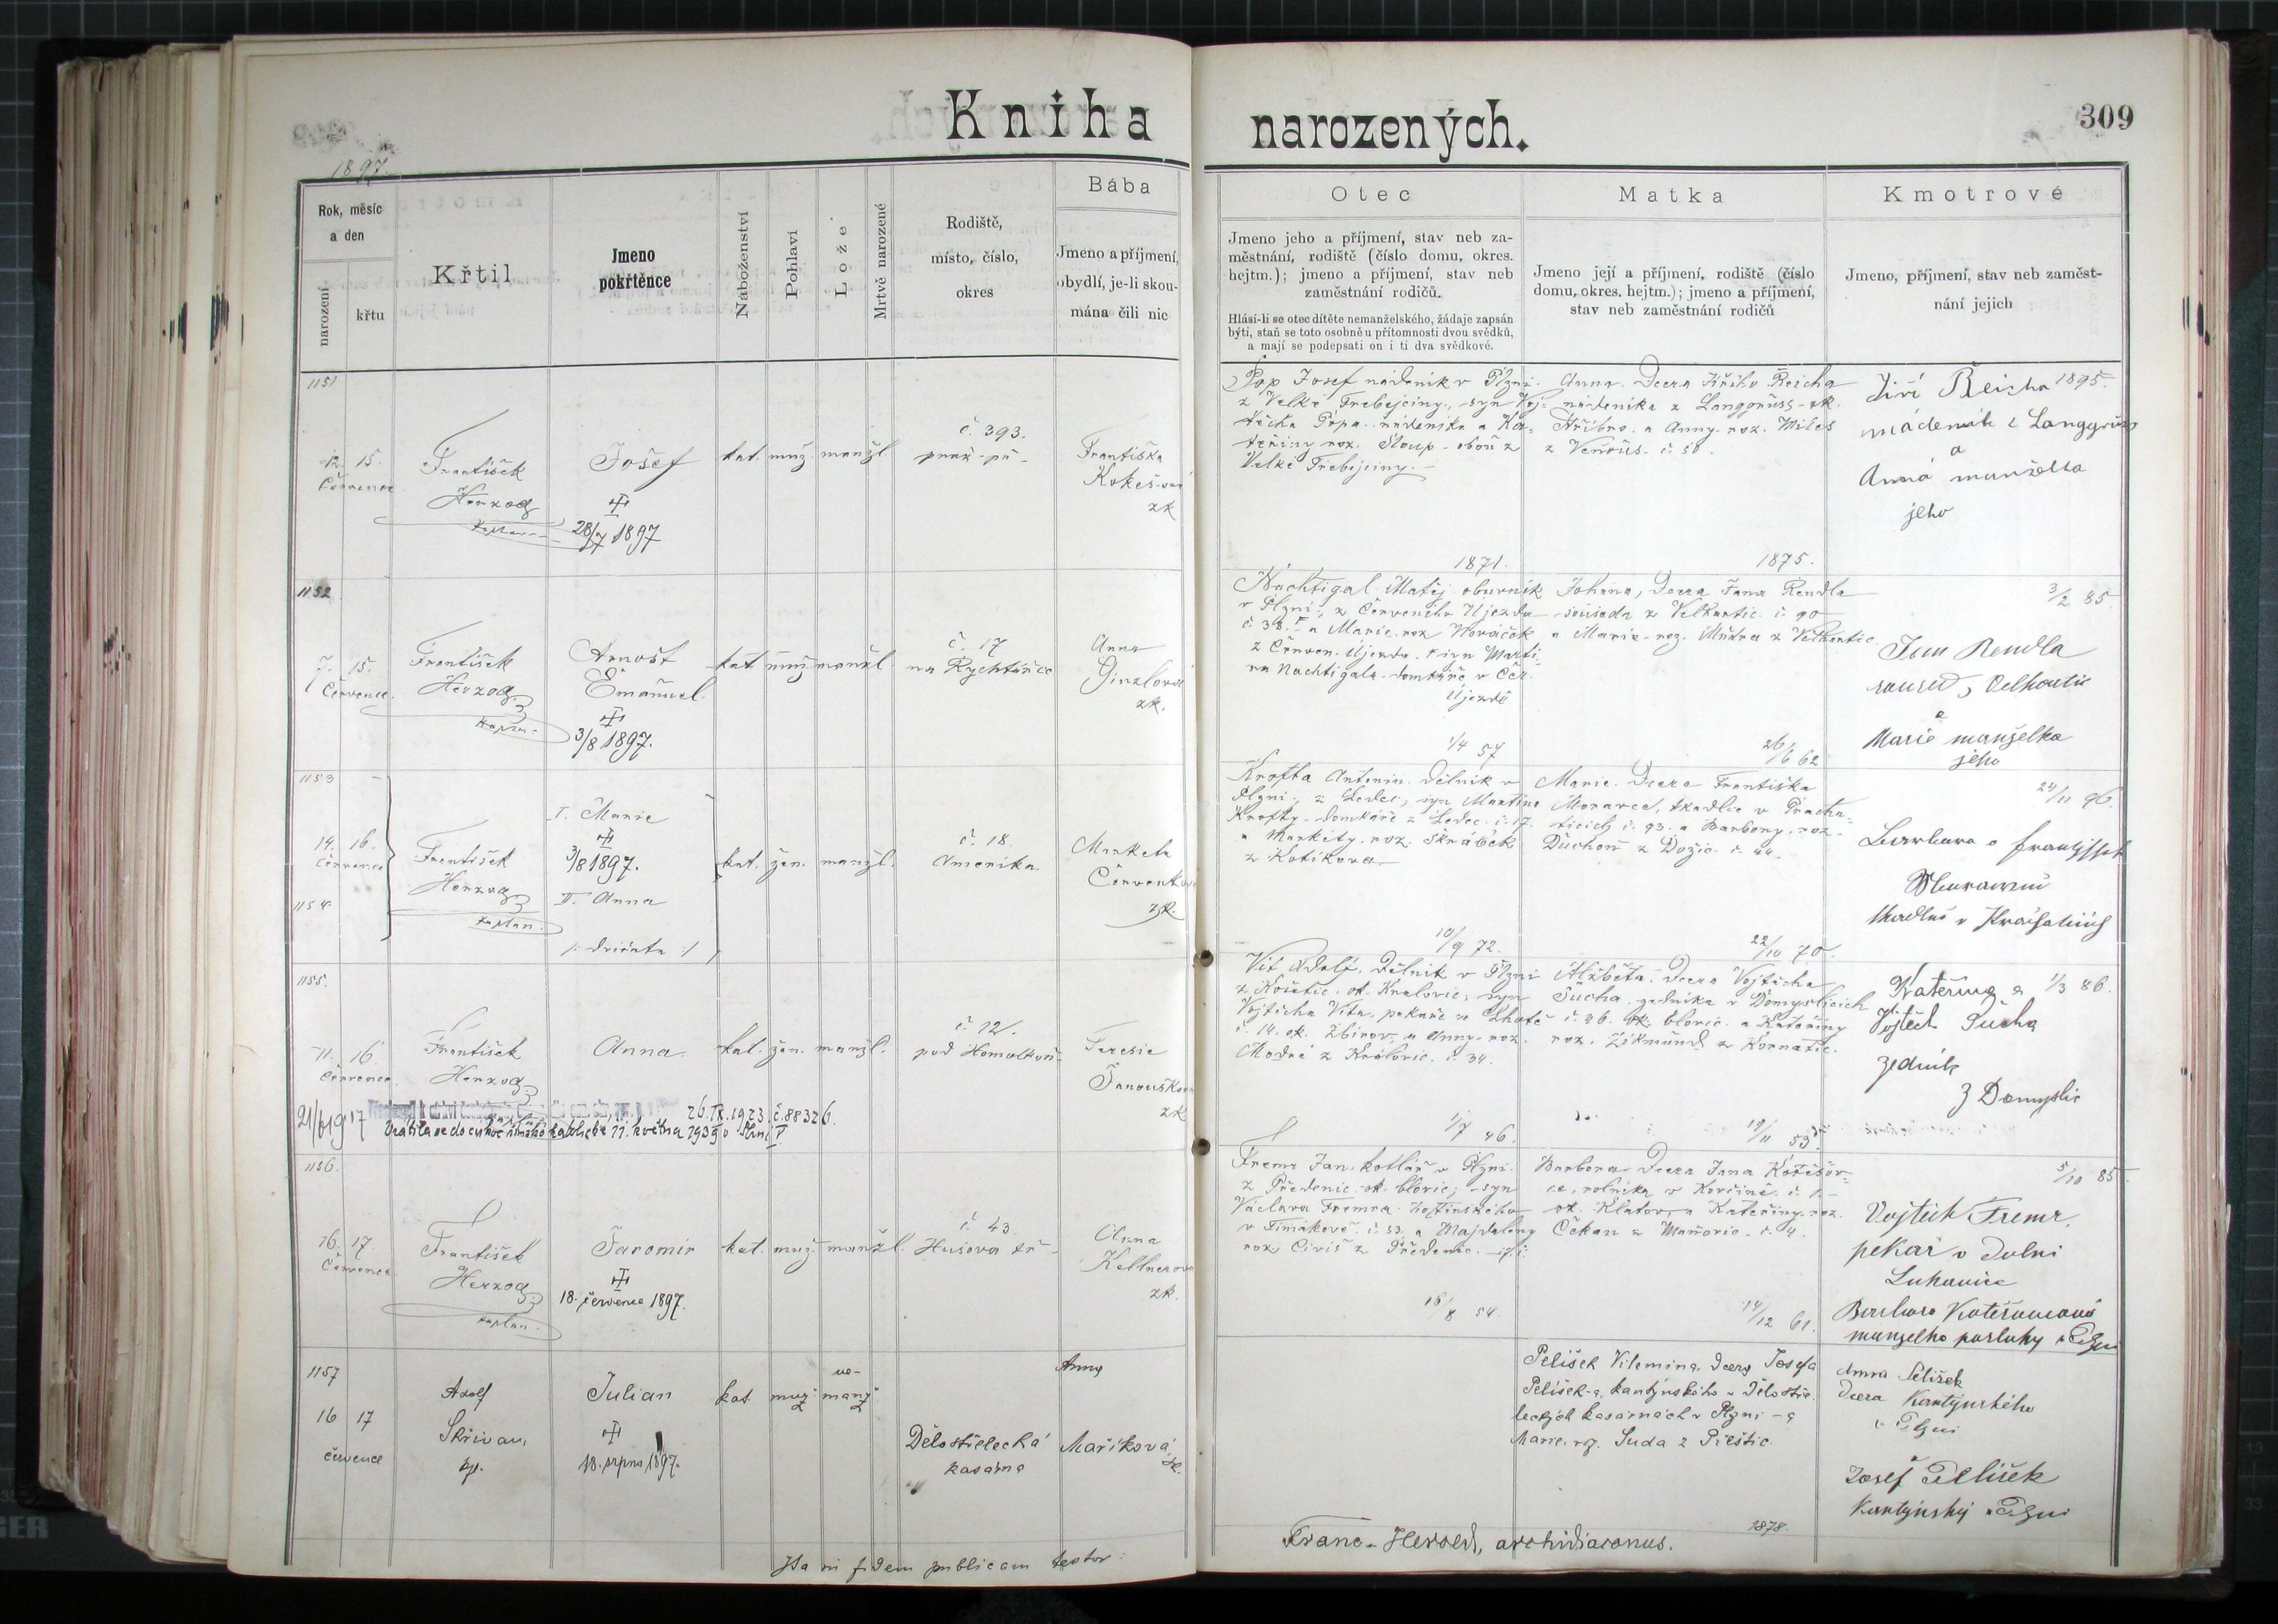 Kniha narozených.
309
1897.
Rok, měsíc
a den
narození
křtu
Křtil
Jmeno
pokřtěnce
Náboženství
Pohlaví
Lože
Mrtvě narozené
Rodiště,
místo, číslo,
okres
Bába
Jmeno a příjmení,
obydlí, je-li skou-
mána čili nic
Otec
Jmeno jeho a příjmení, stav neb za-
městnání, rodiště (číslo domu, okres.
hejtm.); jmeno a příjmení, stav neb
zaměstnání rodičů.
Hlásí-li se otec dítěte nemanželského, žádaje zapsán
býti, staň se toto osobně u přítomnosti dvou svědků,
a mají se podepsati on i ti dva svědkové.
Matka
Jmeno její a příjmení, rodiště (číslo
domu, okres. hejtm.); jmeno a příjmení,
stav neb zaměstnání rodičů
Kmotrové
Jmeno, příjmení, stav neb zaměst-
nání jejich
1151
12. 15.
Července
František
Herzog
kaplan
Josef
28/7 1897
kat. muž. manžl
č. 393.
Františka
Kokeš
zk
Pop Josef nádeník v Plzni
z Velké Trebejciny, syn Voj-
těcha Popa nádeníka a Ka-
teřiny roz. Stoup - oboň z
Velké Trebejciny.
1871.
Anna. Dcera Jiřího Reicha
nádeníka z Langgrüss - ok.
Stříbro. a Anny. roz.
1875.
Jiří Reicha 1895.
nádeník z Langgrün
a
Anna manželka
jeho
1152
7. 15.
Července.
František
Herzog
kaplan
Arnošt
Emanuel
3/8 1897.
kat muž manžl
č. 17
na Rychtářce
Anna
Ginzlová
zk.
Nachtigal Matěj. obuvník
v Plzni, z Červeného Újezda
č. 38. a Marie. roz
z Červen. Újezda. syn Marti-
na Nachtigala - domkáře v Čer.
Újezdě
1/4 57
Johana, Dcera Jana Rendla
souseda z Velkantic. č. 90
a Marie - roz. z
26/6 62
3/2 85.
Jan Rendla
soused z
a
Marie manželka
jeho
1153
14. 16.
Července
1154
František
Herzog
kaplan.
I. Marie
3/8 1897.
II. Anna
/: dvojčata :/
kat. žen. manžl.
č. 18.
Amerika.
Markéta
zk.
Krofta Antonín. Dělník v
Plzni, z Ledec, syn Martina
Krofty - domkáře z Ledec č. 17.
a Markéty. roz. Škrábek
z Kotíkova
10/9 72.
Marie. Dcera Františka
Moravce, tkadlce v Pracha-
ticích č. 93. a Barbory. roz.
Duchoň z Dožic. č. 44.
22/10 70.
24/11 96.
Barbara a
1155.
11. 16.
Července
František
Herzog
Anna
kat. žen. manžl.
č. 12.
pod Homolkou
Teresie
zk
21/6 1917
26. IX. 1923. č. 88326.
Vrátila se do církve římsko katolické 11. května 1939 v Plzni
Vít Adolf. Dělník v Plzni
z ok. Kralovic, syn
Vojtěcha Víta. pekaře ve Lhotě
č. 14. ok. Zbirov, a Anny roz.
Modré z Královic. č. 34.
1/7 46.
Alžběta. Dcera Vojtěcha
Šucha. zedníka v Domyslicích
č. 26. ok. Blovic. a Kateřiny
roz. Zikmund z Kornatic.
19/11 53.
Kateřina a 1/3 86.
Vojtěch Sucha
zedník
z Domyslic
1156.
16. 17.
Července
František
Herzog
kaplan.
Jaromír
18. července 1897.
kat. muž. manžl.
č. 43.
Husova tř
Anna
Kellnerová
zk.
Fremr Jan. kotlář v Plzni.
z Předenic. ok. blovic, syn
Václava Fremra hostinského
v Timákově č. 53. a Majdaleny
roz z Předenic.
16/8 54.
Barbora Dcera Jana
rolníka v Korčině. č. 1.
ok. Klatov. a Kateřiny. roz.
Čekan z č. 4.
14/12 61.
5/10 85.
Vojtěch Fremr,
pekař v Dolní
Lukavice
Barbara
manželka posluhy v Plzni
1157
16 17
července
Adolf
Skřivan,
kp.
Julian
18. srpna 1897.
kat. muž
ne-
manž
Dělostřelecká
kasárna
Anna
Maříková
zk.
Pelíšek Vilemina, dcera Josefa
Pelíšek-a, kantýnského v dělostře-
leckých kasárnách v Plzni - a
Marie, roz. Suda z Přeštic.
1878.
Anna Pelíšek
dcera kantýnského
v Plzni
a
Josef Pelíšek
Kantýnský v Plzni
Ita in fidem publicam testor:
Franc. Herold, archidiaconus.